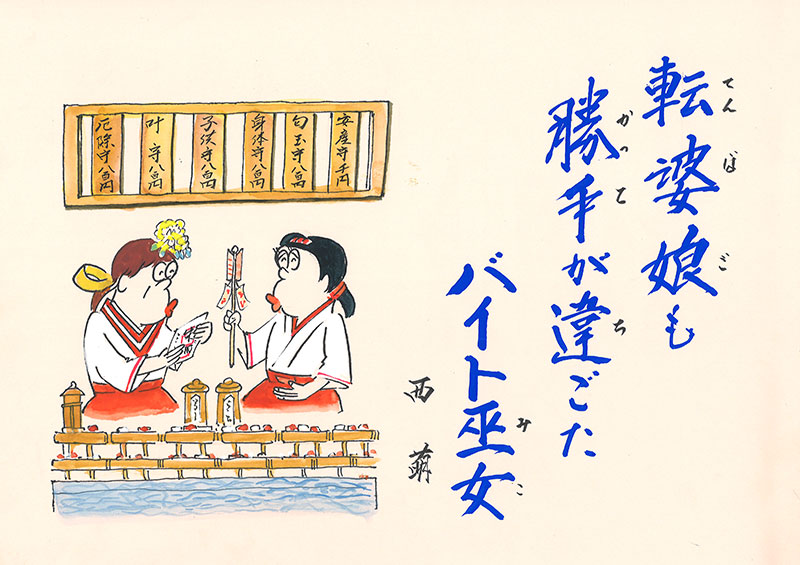 転婆娘も
てんばご
勝手が違ごた
かってち
バイト巫女
みこ
西萌
安産守千円
勾玉守八百円
身体守八百円
子供守八百円
叶守八百円
厄除守八百円